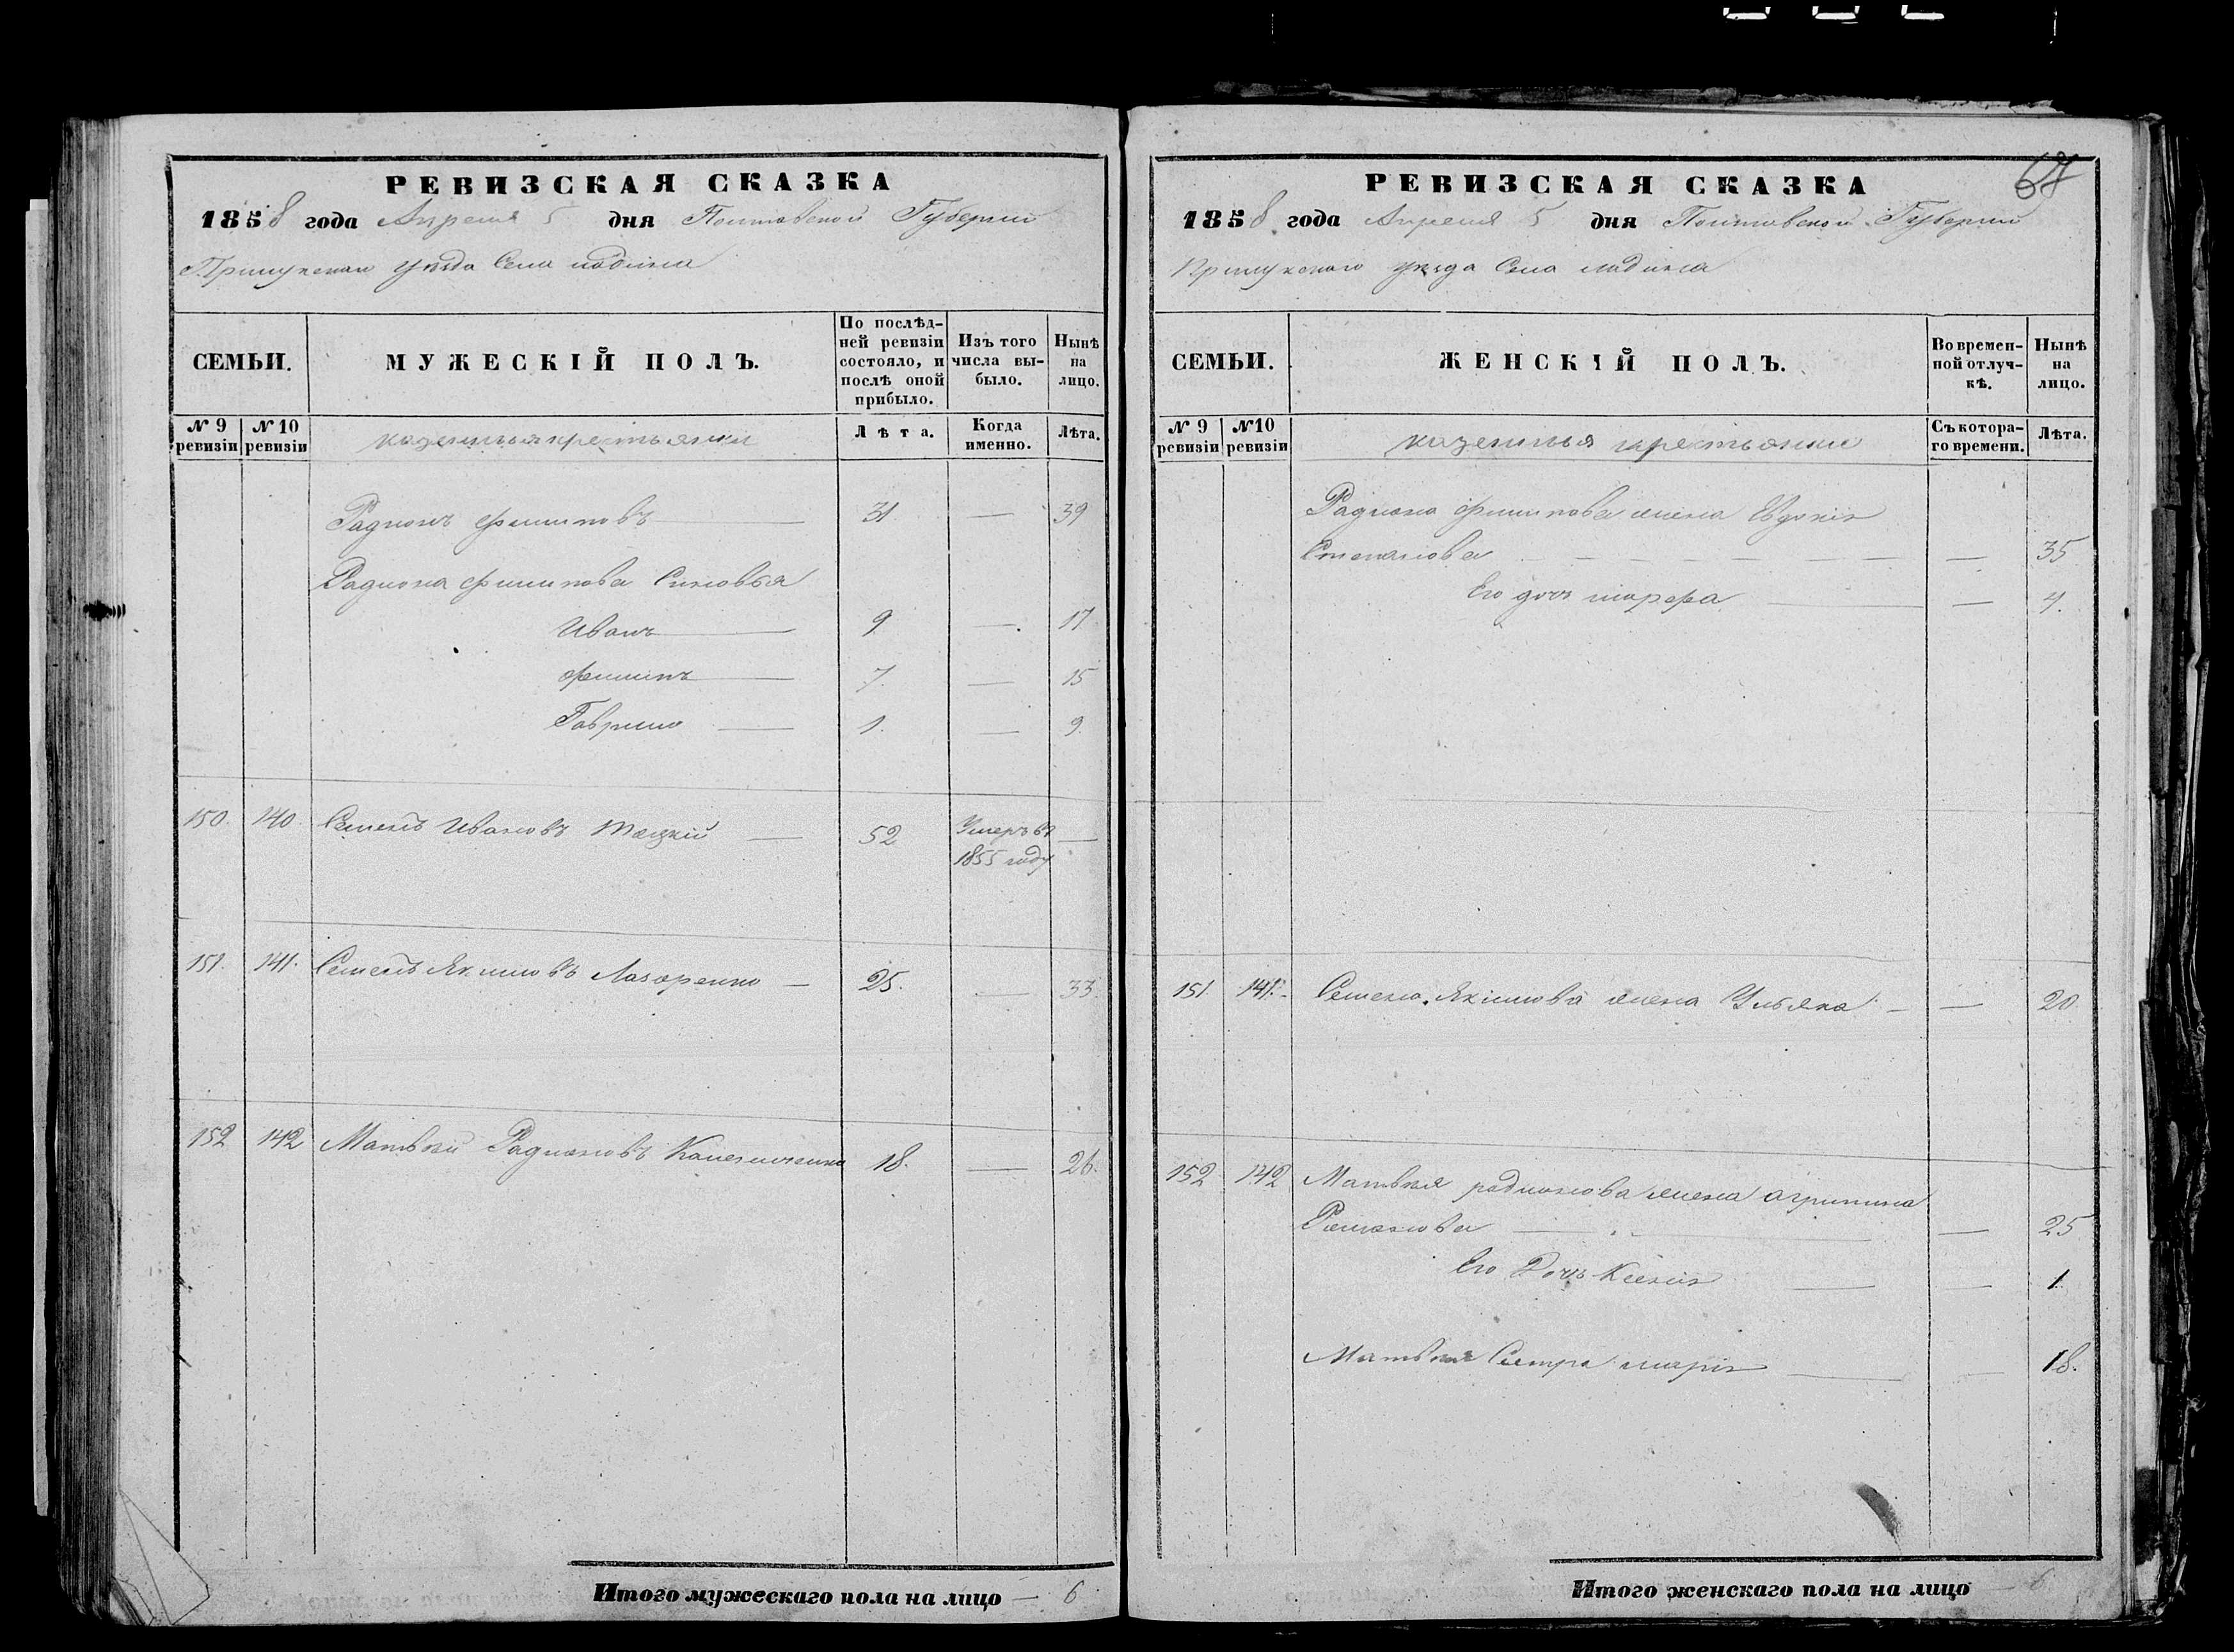 РЕВИЗСКАЯ СКАЗКА
1858 года Апреля 5 дня Полтавской Губерніи
Прилукскаго уѣзда Села ладина
СЕМЬИ.
МУЖЕСКІЙ ПОЛЪ.
По послѣд-
ней ревизіи
состояло, и
послѣ оной
прибыло.
Изъ того
числа вы-
было.
Нынѣ
на
лицо.
№ 9
ревизіи
№ 10
ревизіи
казенныя крестьянки
Лѣта.
Когда
именно.
Лѣта.
Радионъ Филиповъ 31 — 39
Радиона Филипова Синовья
Иванъ 9 — 17
Филипъ 7 — 15
Гаврило 1 — 9
150. 140. Семенъ Ивановъ 52 Умеръ въ —
1855 году
151. 141. Семенъ Якимовъ Лазоренко — 25. — 33.
152 142 Матвѣй Радионовъ 18. — 26.
Итого мужескаго пола на лицо — 6
67
РЕВИЗСКАЯ СКАЗКА
1858 года Апреля 5 дня Полтавской Губерніи
Прилукскаго уѣзда Села ладина
СЕМЬИ.
ЖЕНСКІЙ ПОЛЪ.
Во времен-
ной отлуч-
кѣ.
Нынѣ
на
лицо.
№ 9
ревизіи
№ 10
ревизіи
казенныя крестьянки
Съ котора-
го времени.
Лѣта.
Радиона Филипова жена Евдокія
Степанова — 35
Его дочь марфа — 4.
151. 141. Семена Якимова жена Ульяна — 20
152 142 Матвѣя радионова жена агрипина
Романова — 25
Его Дочь Ксенія — 1.
Матвѣя Сестра марія — 18.
Итого женскаго пола на лицо — 6